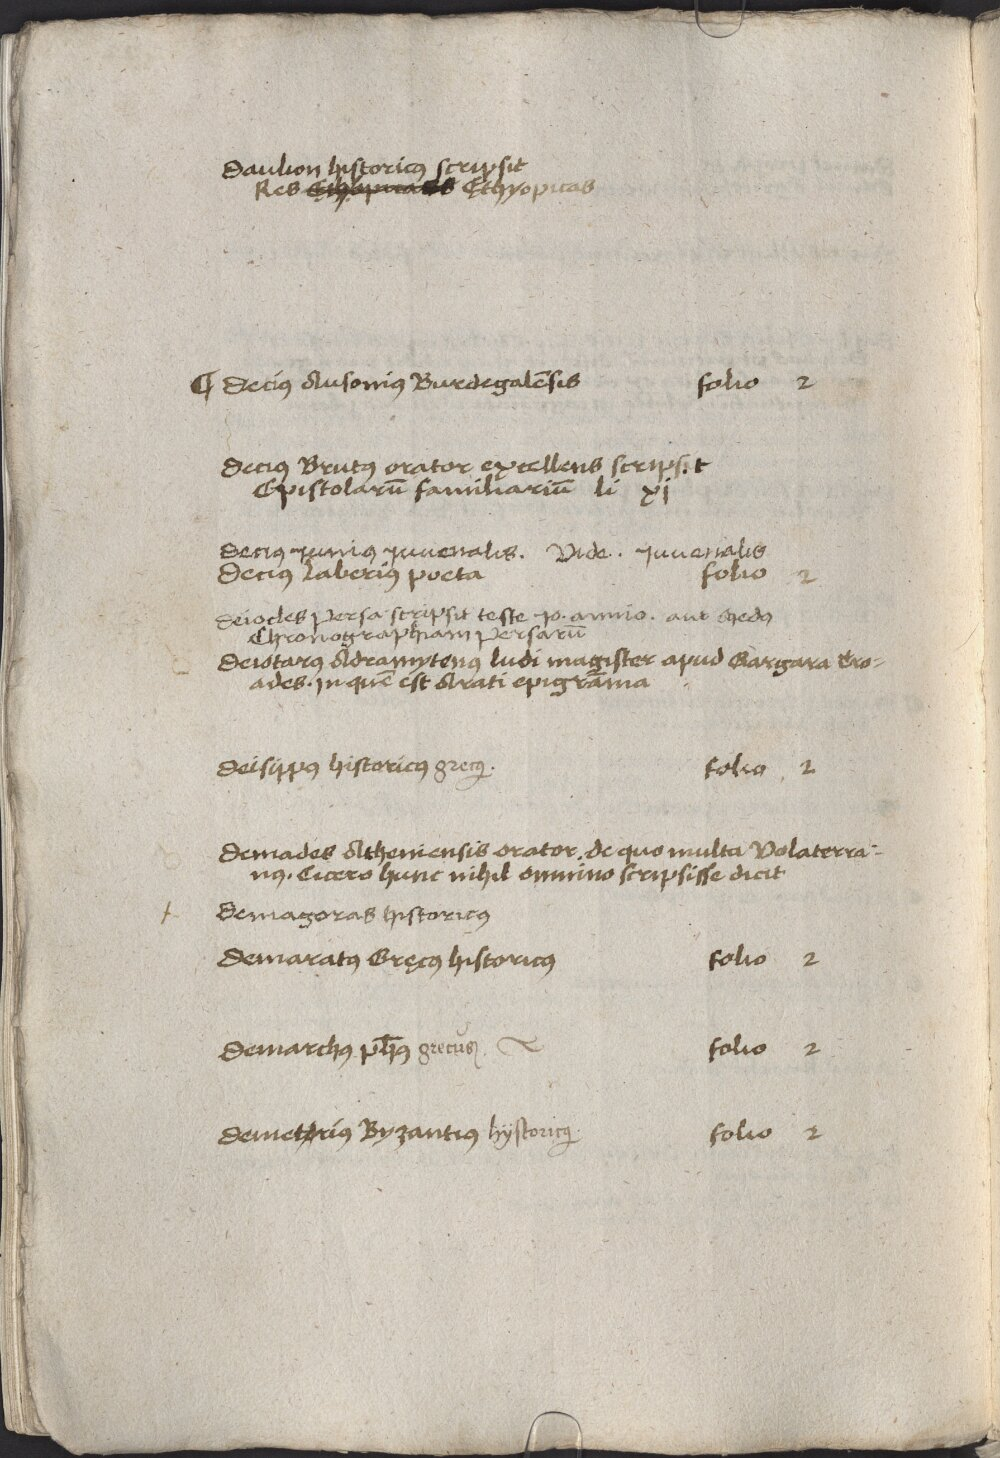 Daulion historicꝰ scripsit
Res Ęthyopicas
¶ Deciꝰ Ausoniꝰ Burdegalēsis folio 2
Deciꝰ Brutꝰ orator excellens scripsit
Epistolarū familiariū li xj
Deciꝰ Juniꝰ Juuenalis. Vide. Juuenalis
Deciꝰ Laberiꝰ poeta folio 2
Deiocles Persa scripsit teste Jo. Annio. aut Medꝰ
Chronographiam Persarū
Deiotarꝰ Adramytenꝰ ludi magister apud Gargara Tro-
ades. In quē est Arati epigrāma
Deisippꝰ historicꝰ grecꝰ. folio 2
Demades Atheniensis orator. de quo multa Volaterra-
nꝰ. Cicero hunc nihil omnino scripsisse dicit
Demagoras historicꝰ
Demaratꝰ Gręcꝰ historicꝰ folio 2
Demarchꝰ ph̄ꝰ grecus folio 2
Demetriꝰ Byzantiꝰ hÿstoricꝰ folio 2